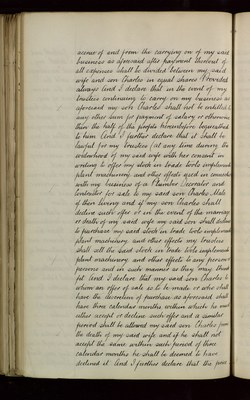 accrue of and from the carrying on of my said
business as aforesaid after payment thereout of
all expenses shall be divided between my said
wife and son Charles in equal shares Provided
always And I declare that in the event of my
trustees continuing to carry on my business as
aforesaid my son Charles shall not be entitled to
any other sum for payment of salary or otherwise
than the half of the profits hereinbefore
to him And I further declare that it shall be
lawful for my trustees (at any time during the
widowhood of my said wife with her consent in
writing to offer my stock in trade tools implements
plant machinery and other effects used in connection
with my business of a Plumber Decorator and
Contractor for sale to my said son Charles
if then living and if my son Charles shall
decline such offer or in the event of the marriage
or death of my said wife my said son shall decline
to purchase my said stock in trade tools implements
plant machinery and other effects my trustees
shall sell the said stock in trade tools implements
plant machinery and other effects to any person or
persons and in such manner as they may think
fit And I declare that my said son Charles to
whom an offer of sale is to be made or who shall
have the discretion of purchase as aforesaid shall
have three calendar months within which he must
either accept or decline such offer and a similar
period shall be allowed my said son Charles from
the death of my said wife and if he shall not
accept the same within such period of three
calendar months he shall be deemed to have
declined it And I further declare that the